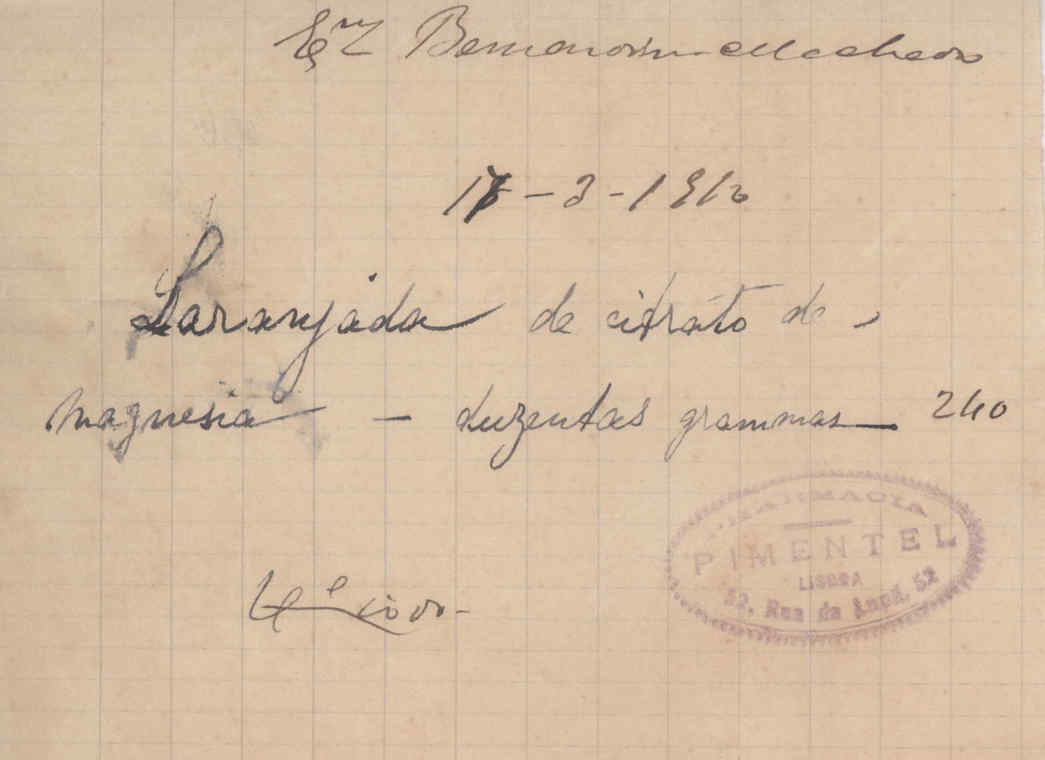 Bernardino Machado
17-3-1910
Laranjada de citrato de
magnesia — duzentas grammas — 240
PHARMACIA
PIMENTEL
LISBOA
52, Rua da 52